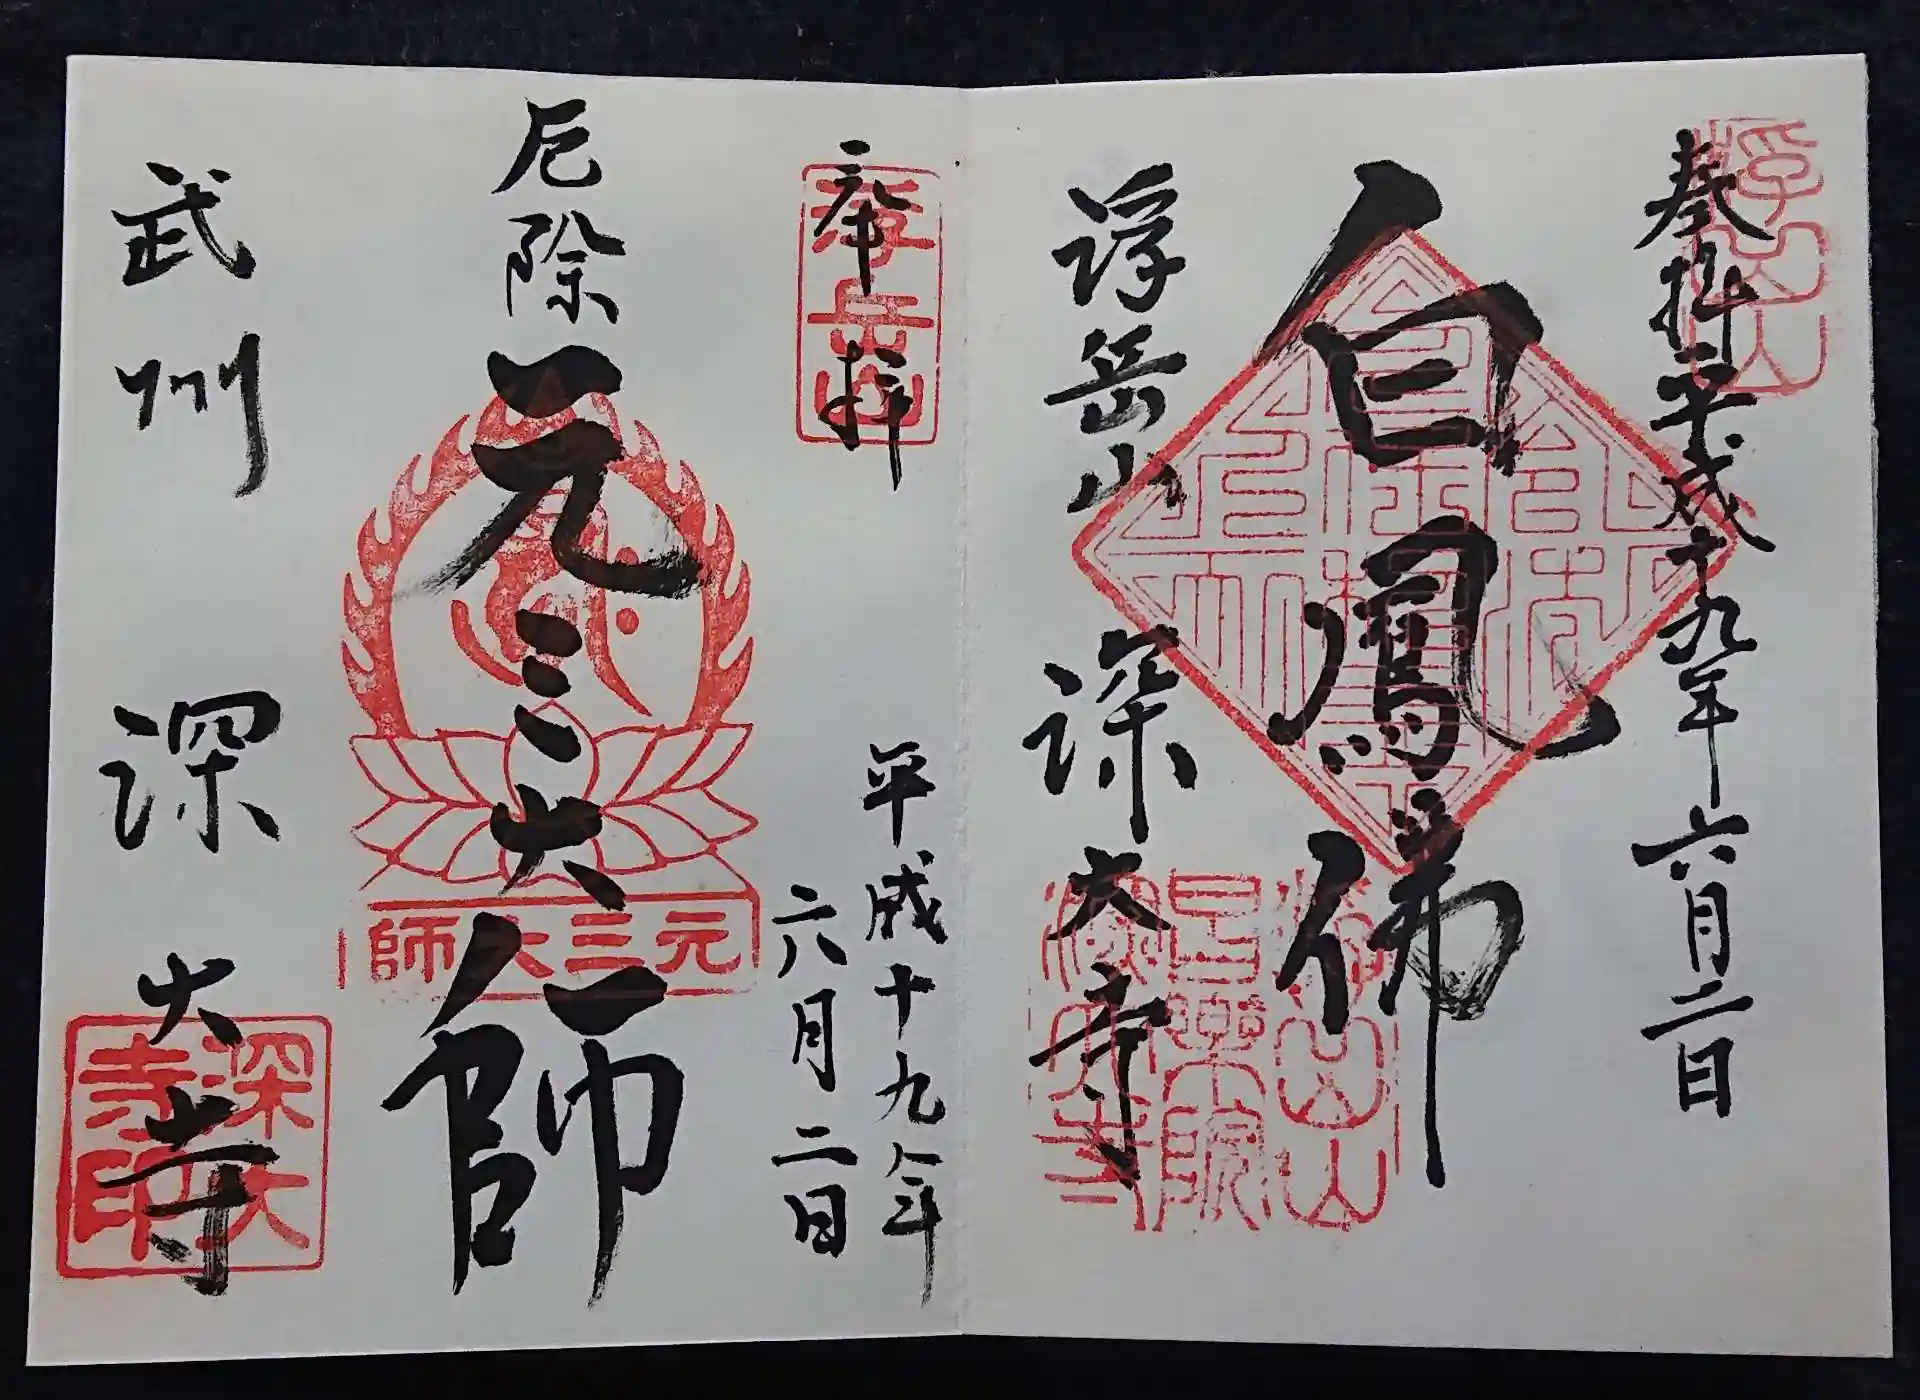 奉拝 平成十九年六月二日
白鳳佛
浮岳山 深大寺
奉拝
平成十九年
六月二日
厄除 元三大師
元三大師
武州 深大寺
深大
寺印